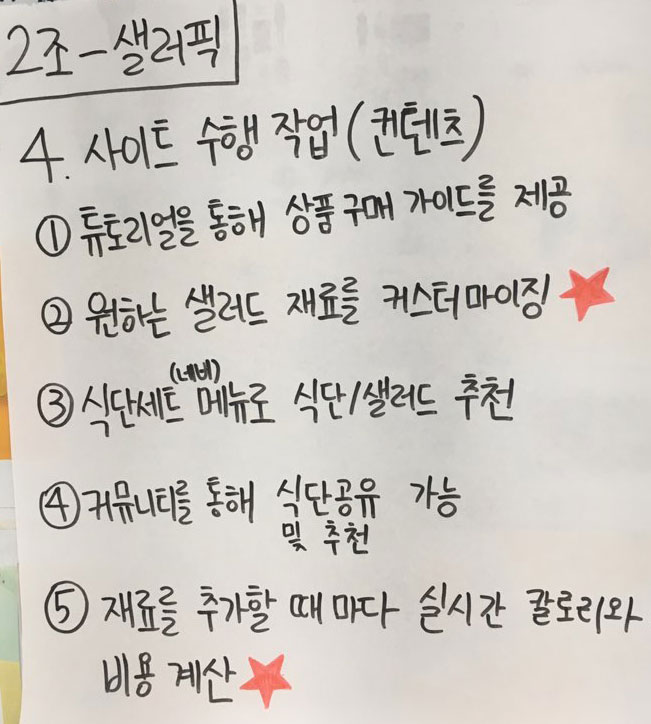 2조-샐러픽
4. 사이트 수행 작업(컨텐츠)
① 튜토리얼을 통해 상품구매 가이드를 제공
② 원하는 샐러드 재료를 커스터마이징
(네비)
③ 식단세트 메뉴로 식단/샐러드 추천
④ 커뮤니티를 통해 식단공유 가능
및 추천
⑤ 재료를 추가할 때 마다 실시간 칼로리와
비용 계산